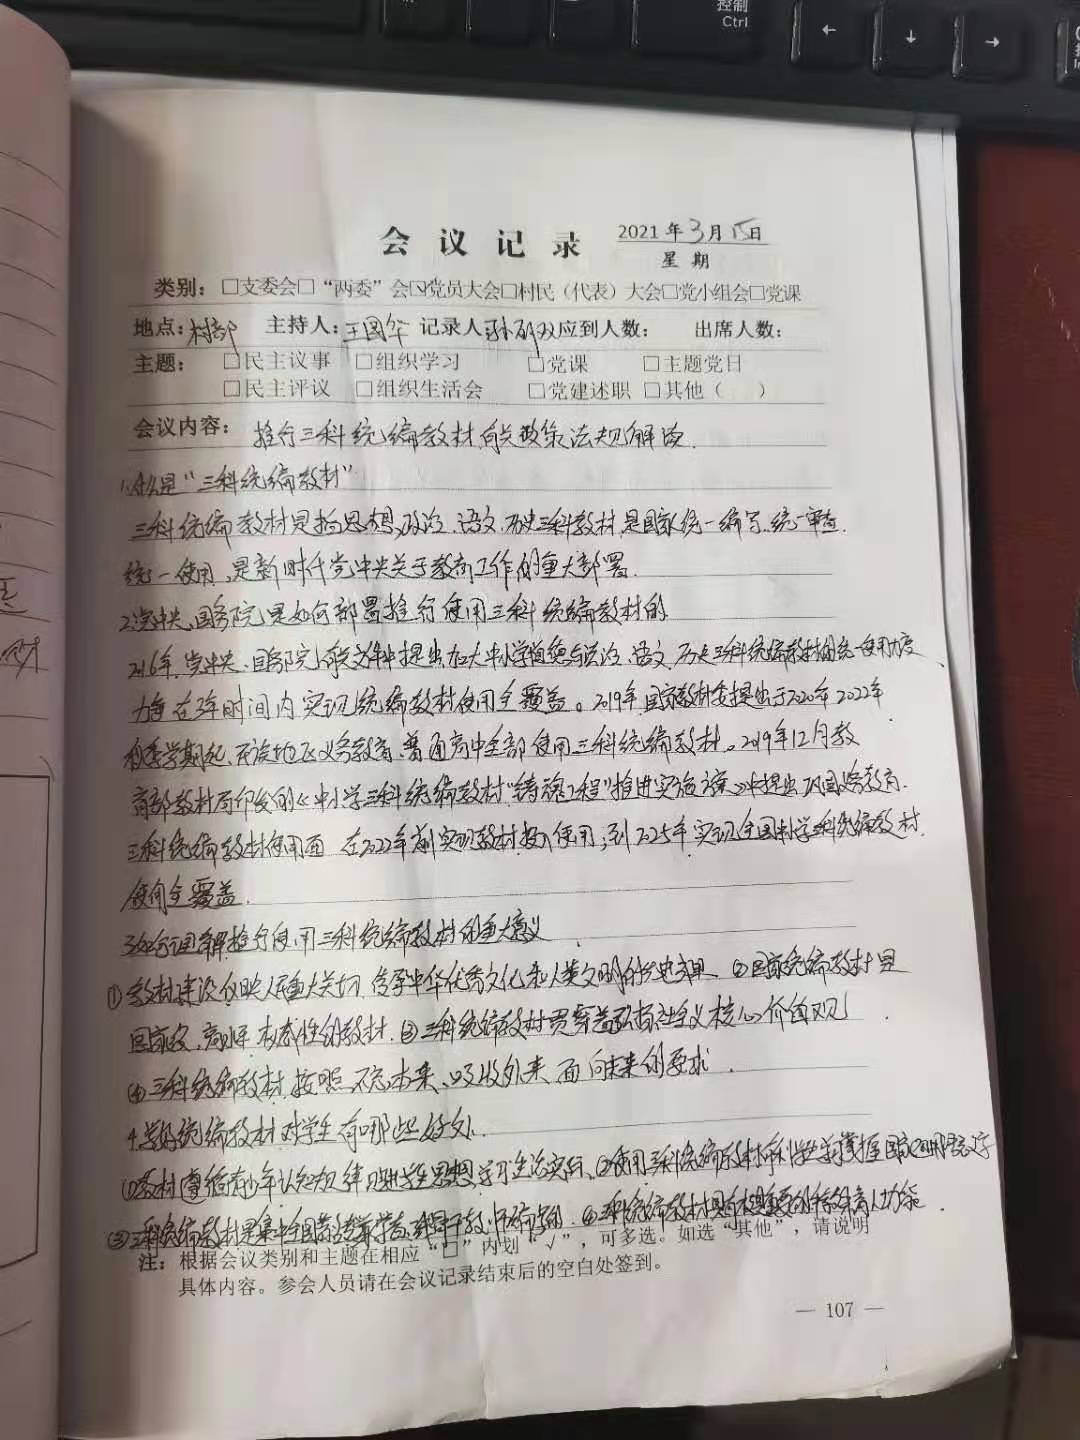 控制
Ctrl
会议记录
2021年3月15日
星期
类别：□支委会□“两委”会☑党员大会□村民（代表）大会□党小组会□党课
地点：村部 主持人：王国华 记录人 应到人数： 出席人数：
主题： □民主议事 □组织学习 □党课 □主题党日
□民主评议 □组织生活会 □党建述职 □其他（ ）
会议内容： 推行三科统编教材有关政策法规解读.
1.什么是“三科统编教材”
三科统编教材是指思想政治、语文、历史三科教材,是国家统一编写、统一审查.
统一使用,是新时代党中央关于教育工作的重大部署.
2.党中央、国务院是如何部署推行使用三科统编教材的
2016年,党中央、国务院 提出加大中小学道德与法治、语文、历史三科统编教材的统一使用力度
力争在3年时间内实现统编教材使用全覆盖。2019年,国家教材委提出于2020年2022年
秋季学期起,民族地区义务教育、普通高中全部使用三科统编教材。2019年12月教
育部教材局印发的《中小学三科统编教材“铸魂工程”推进实施方案》中提出,巩固义务教育.
三科统编教材使用面 在2022年前实现教材 使用;到2025年实现全国中小学三科统编教材
使用全覆盖.
3.如何理解推行使用三科统编教材的重大意义
①教材建设 重大关切,传承中华优秀文化和人类文明 成果 ②国家统编教材是
国家级,高水平, 的教材.③三科统编教材贯穿着弘扬社会主义核心价值观.
④三科统编教材按照不忘本来、吸收外来、面向未来的要求.
4.学好统编教材对学生有哪些好处.
①教材遵循青少年认知规律 学生思想,学习生活实际.②使用三科统编教材有利 掌握国家通用语言文字
③三科统编教材是集中全国 学者、 编写的.④三科统编教材具有 重要的 育人功能
注：根据会议类别和主题在相应“□”内划“√”，可多选。如选“其他”，请说明
具体内容。参会人员请在会议记录结束后的空白处签到。
— 107 —